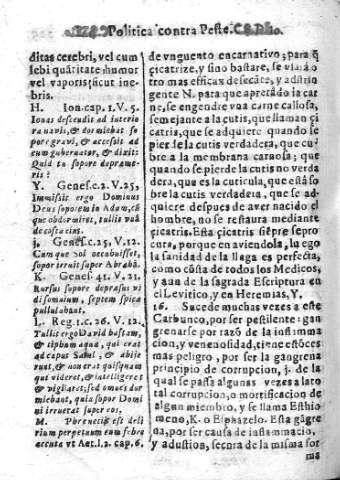 Politica contra Peste.
ditas cerebri, vel cum
sebi quãtitate humor
vel vaporis sicut ine-
bris.
H. Ion. cap. 1. V. 5.
Ionas descendit ad interio
ra navis, & dormiebat so
pore gravi, & accessit ad
eum gubernator, & dixit:
Quid tu sopore deprime-
ris?
Y. Genes. c. 2. V. 25,
Immissit ergo Dominus
Deus soporem in Adam, cũ
que obdormisset, tullit unã
de costa eius.
j. Genes. c. 25, V. 12.
Cum que sol occubuisset,
sopor irruit super Abrahã.
K. Genes. 41. V. 21.
Rursus sopore depraſus vi
di somnium, septem spica
pullulabant.
L. Reg. 1. c. 26. V. 12.
Tullit ergo David hastam,
& ciphum aqua, qui erat
ad caput Saul, & abije
runt, & non erat quisquam
qui videret, & intelligeret
& vigilaret, sed omnes dor
miebant, quia sopor Domi
ni irruerat super eos.
M. Phrenetis est deli
rium perpetuum cum febre
accuta vt Aet. l. 2. cap. 6.
de vnguento encarnativo; para q̃
çicatrize, y sino bastare, se vsara o
tro mas efficas desecãte, y adstrin
gente N. para que apretado la car
ne, se engendre vna carne callosa,
semejante a la cutis, que llaman çi
catris, que se adquiere quando se
pierde la cutis verdadera, que cu-
bre a la membrana carnosa; que
quando se pierde la cutis no verda
dera, que es la cuticula, que està so
bre la cutis verdadera, que se ad-
quiere despues de aver nacido el
hombre, no se restaura mediante
çicatris. Esta çicatris siẽpre se pro
cura, porque en aviendola, luego
la sanidad de la llaga es perfecta,
como cõsta de todos los Medicos,
y aun de la sagrada Escriptura en
el Levitico, y en Heremias, Y,
16. Sucede muchas vezes a este
Carbunco, por ser pestilente: gan
grenarse por razõ de la inflamma
cion, y venenosidad, tiene estõces
mas peligro, por ser la gangrena
principio de corrupcion, j. de la
qual se passa algunas vezes a la to
tal corrupcion, o mortificacion de
algun miembro, y se llama Esthio
meno, K. o Esphazelo. Esta gãgre
na, por ser causa de inflammacio,
y adustion, seçura de la misma for
ma